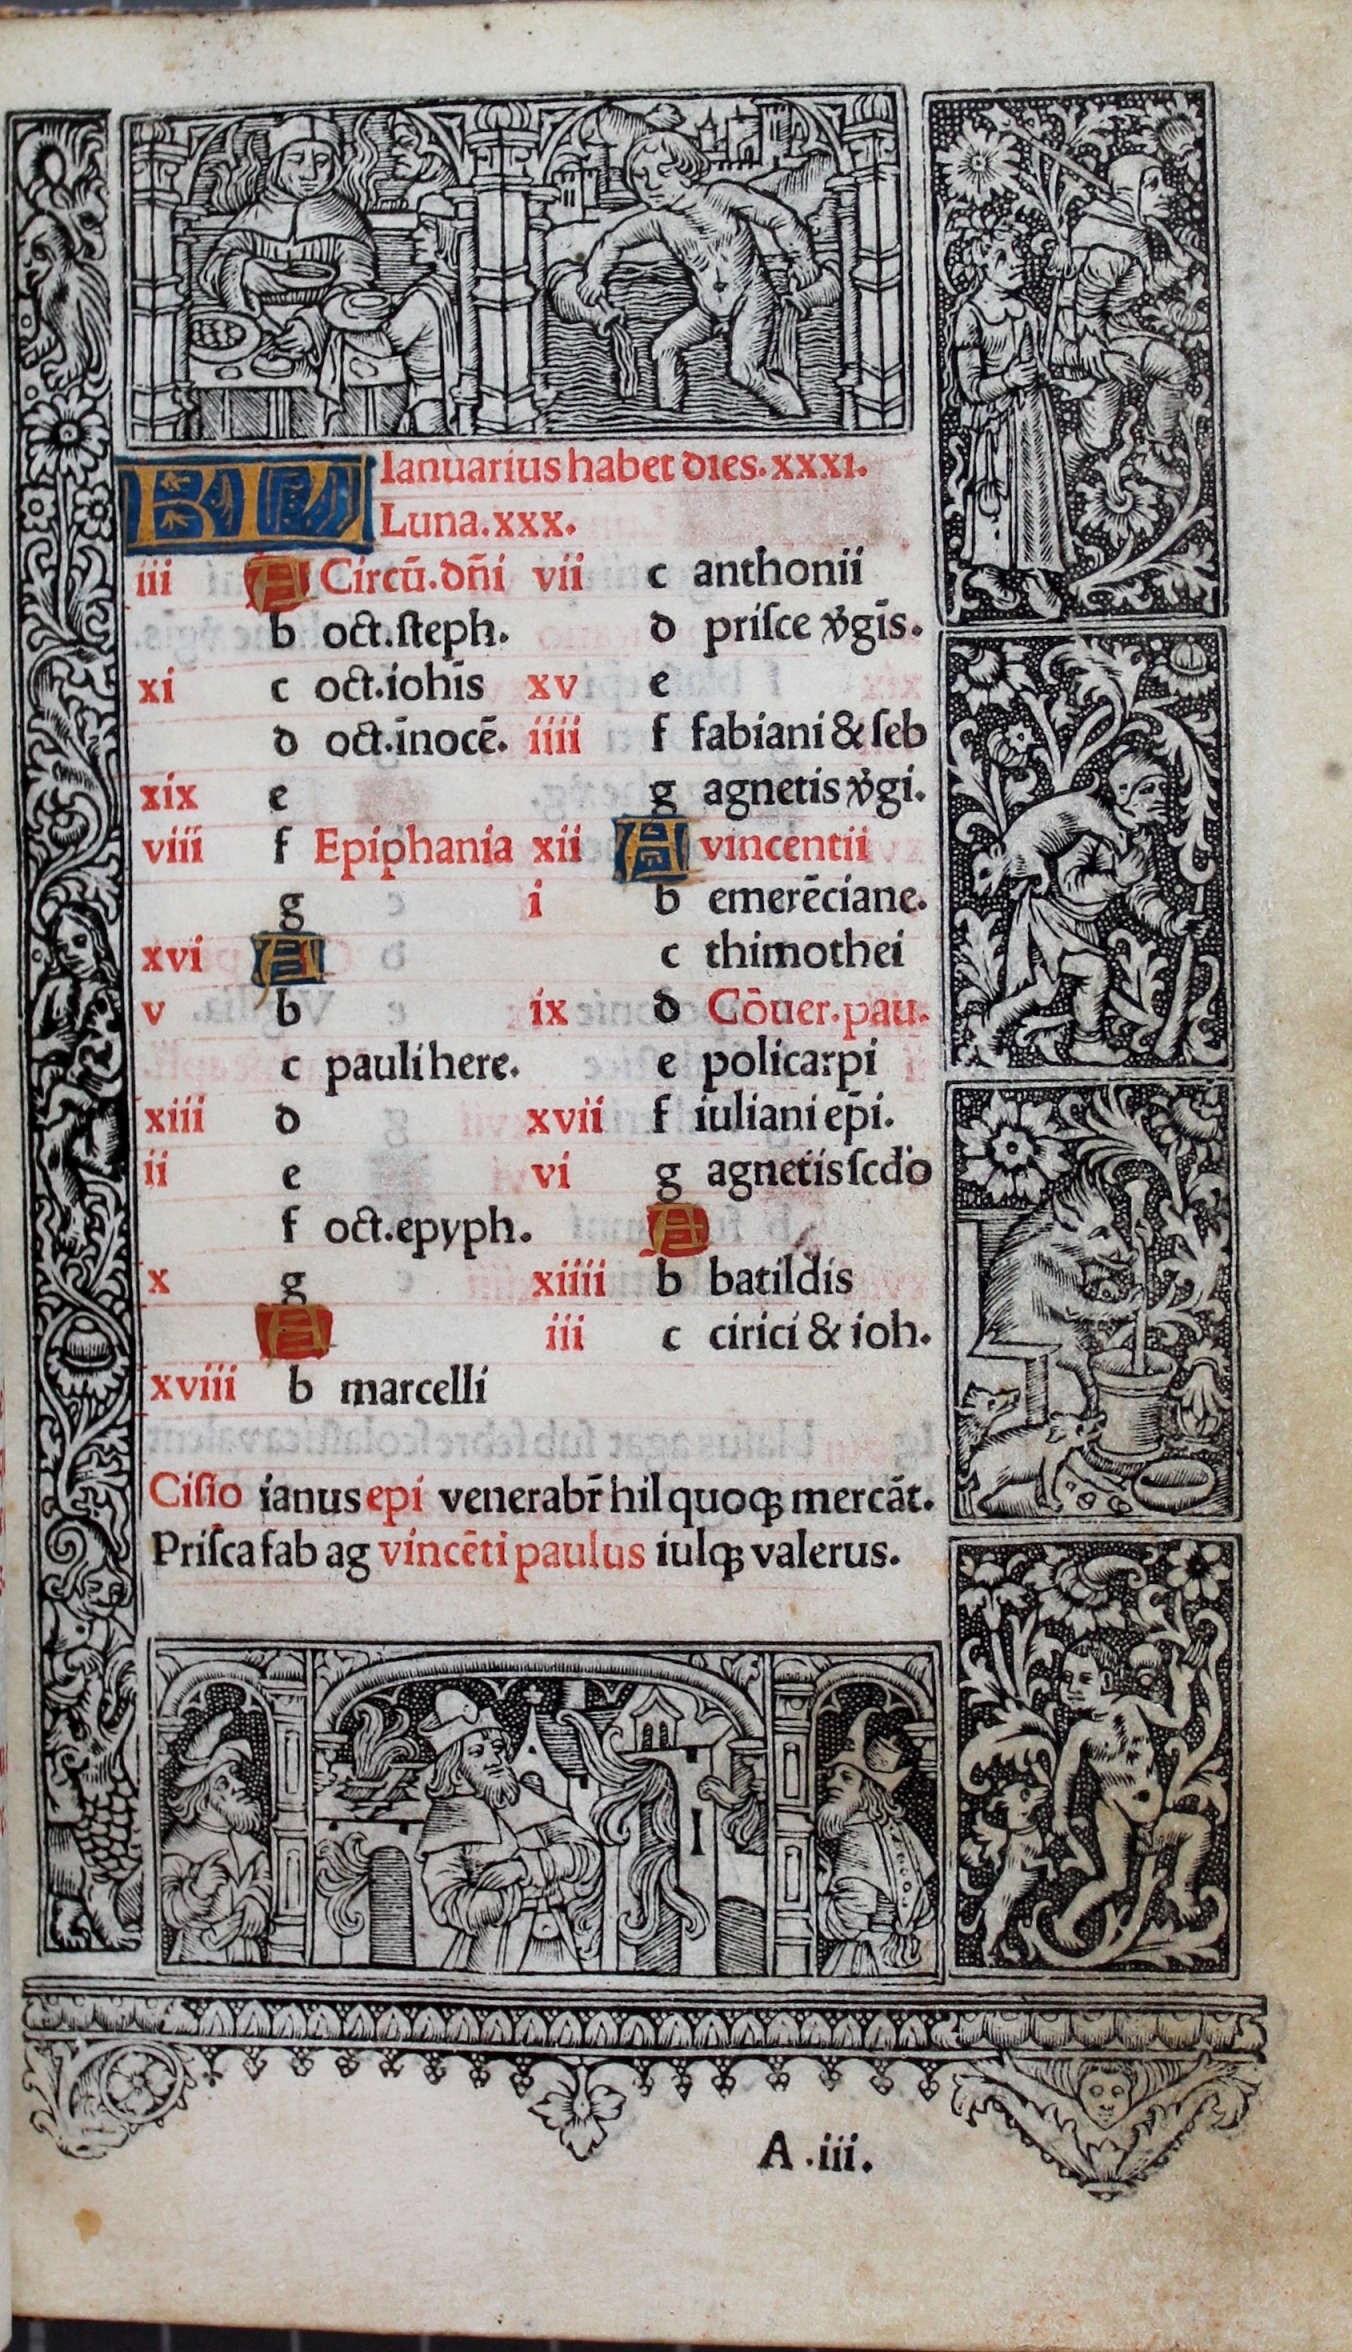 KL Ianuarius habet dies.xxxi.
Luna.xxx.
iii A Circũ.dñi
b oct.ſteph.
xi c oct.iohīs
d oct.īnocē.
xix e
viii f Epiphania
g
xvi A
v b
c pauli here.
xiii d
ii e
f oct.epyph.
x g
A
xviii b marcelli
vii c anthonii
d priſce v̾gīs.
xv e
iiii f fabiani & ſeb
g agnetis v̾gi.
xii A vincentii
i b emerēciane.
c thimothei
ix d Cōuer.pau.
e policarpi
xvii f iuliani ep̄i.
vi g agnetis ſcdo
A
xiiii b batildis
iii c cirici & ioh.
Ciſio ianus epi venerabr̄ hil quoqꝫ mercāt.
Priſca fab ag vincēti paulus iulqꝫ valerus.
A .iii.